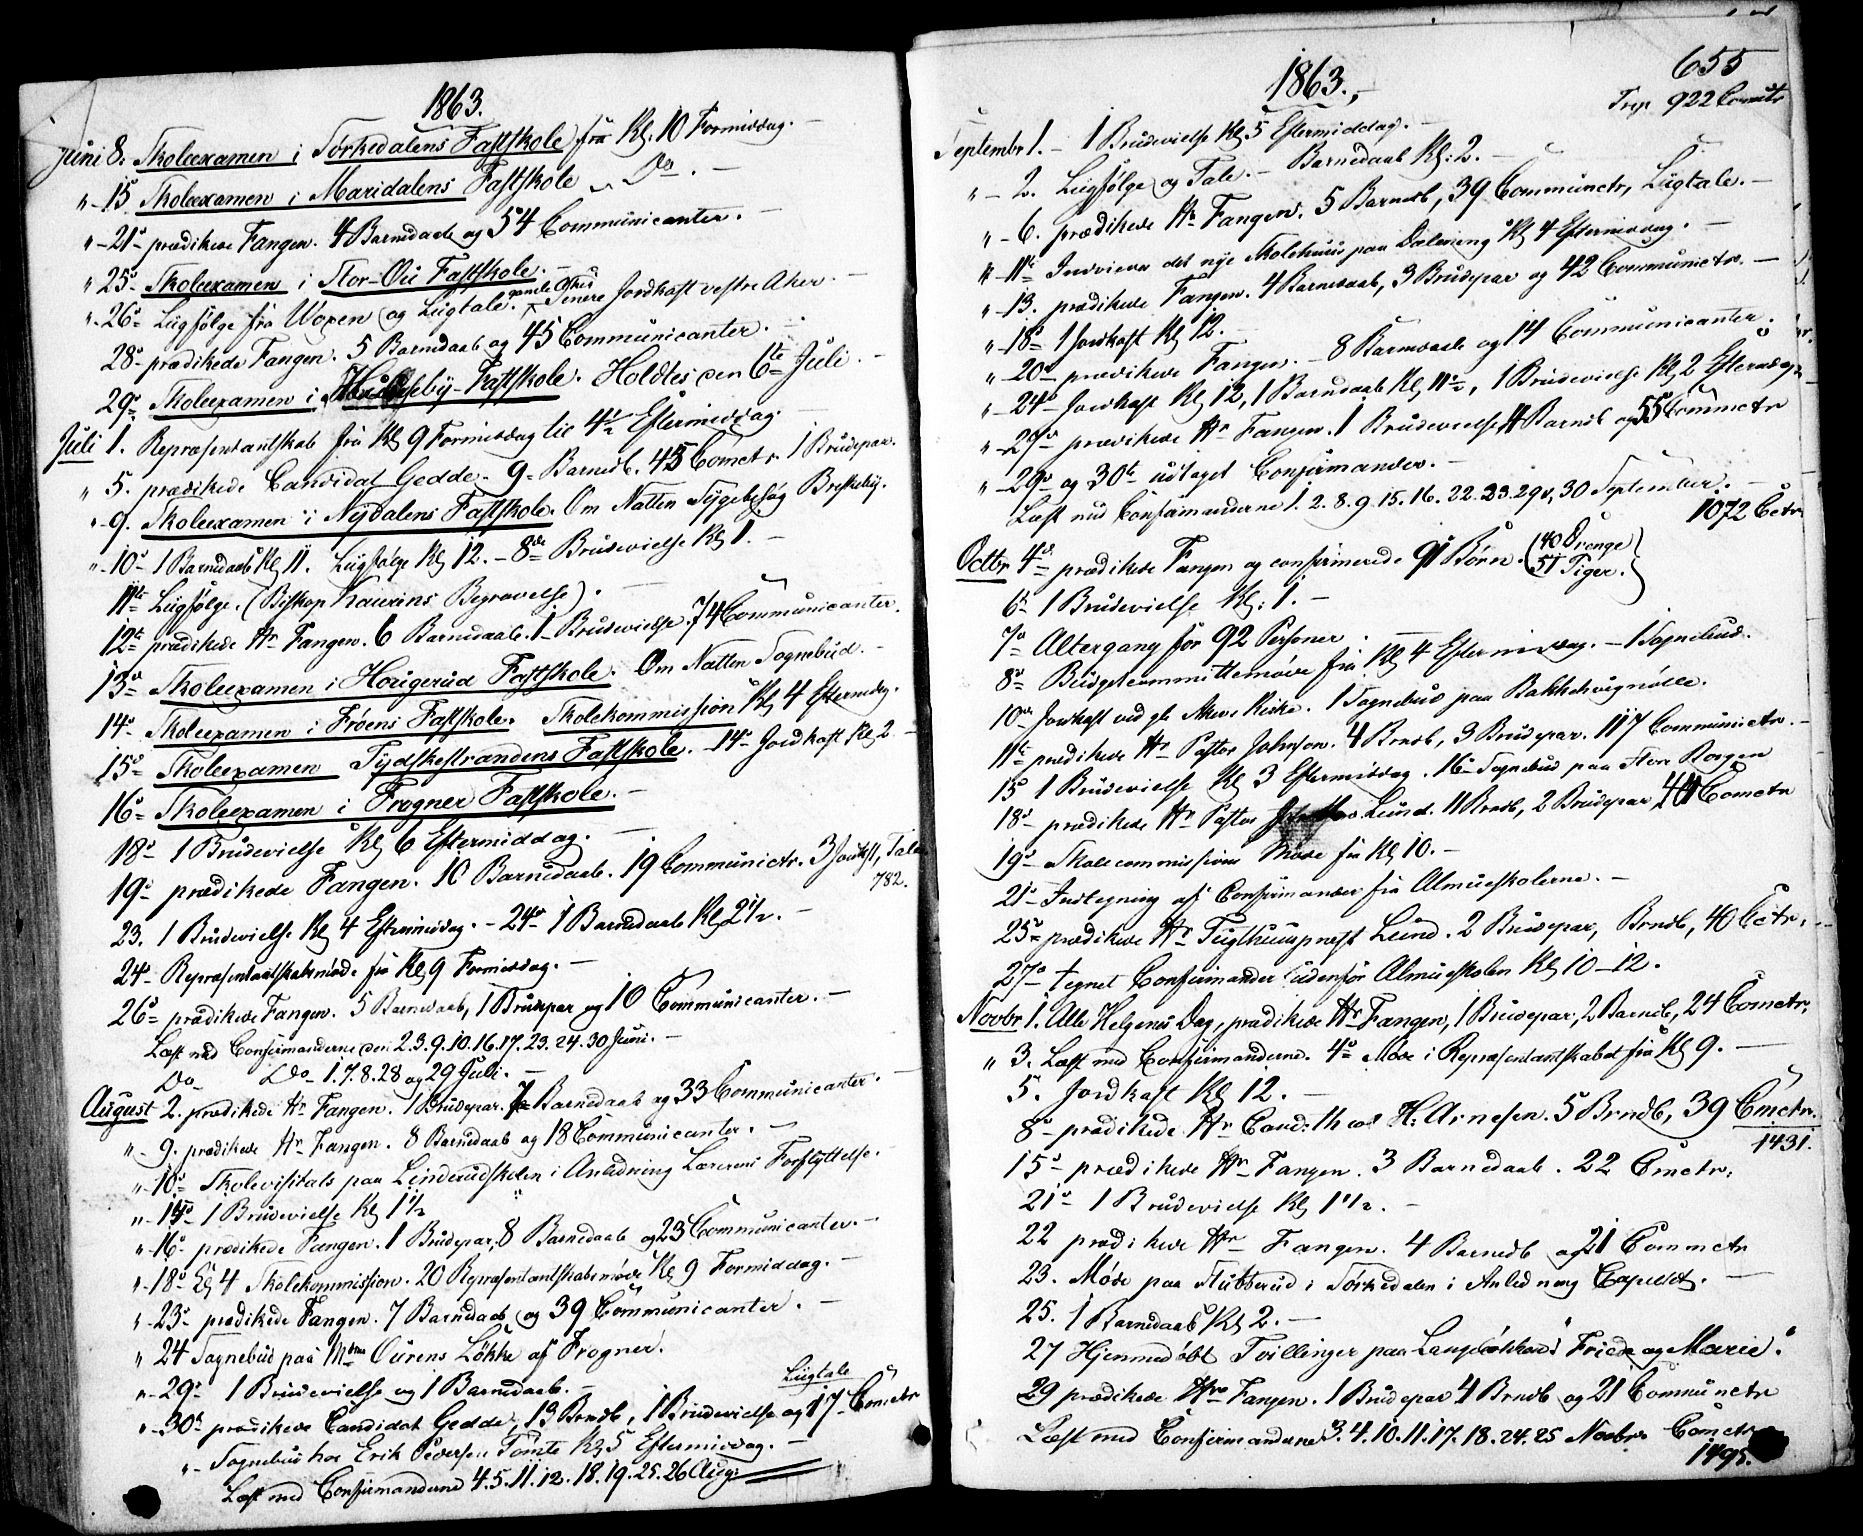 1863.
Juni 8. Skoleexamen i Sørkedalens Fastskole fra Kl. 10 Formiddag. –
" – 15 Skoleexamen i Maridalens Fastskole – Do. –
" – 21de prædikede Fangen. 4 Barnedaab og 54 Communicanter. –
" 25de Skoleexamen i Stor-Øu Fastskole. –
" – 26de Liigfølge fra Woxen og Liigtale. gamle Aker Senere Jordkast vestre Aker. –
28de prædikede Fangen. 5 Barnedaab og 45 Communicanter. –
29de Skoleexamen i Huseby-Fastskole. Holdtes den 6te Juli. –
Juli 1. Repræsentantskab fra Kl 9 Formiddag til 4 1/2 Eftermiddag.
" 5. prædikede Candidat Gedde. 9 Barnedb. 45 Comctr. 1 Brudepar.
" – 9. Skoleexamen i Nydalens Fastskole. Om Natten Sygebesøg Brekkeby.
" – 10de 1 Barnedaab Kl 11. Liigfølge Kl 12. – 8de Brudevielse Kl 1. –
11te Liigfølge. (Biskop Kaurins Begravelse). –
12te prædikede Hr Fangen. 6 Barnedaab. 1 Brudevielse. 74 Communicanter.
13de Skoleexamen i Hougerud Fastskole. Om Natten Sognebud. –
14de Skoleexamen i Frøens Fastskole. Skolekommission Kl 4 Eftermdag.
15de Skoleexamen Tydskestrandens Fastskole. – 14de Jordkast Kl 2. –
16de Skoleexamen i Frogner Fastskole. –
18de 1 Brudevielse Kl 6 Eftermiddag. –
19de prædikede Fangen. 10 Barnedaab. 19 Communictr. 3 Jordkst, Tale
782.
23. 1 Brudevielse Kl 4 Eftermiddag. – 24de 1 Barnedaab Kl 2 1/2. –
24de Repræsentantskabsmøde fra Kl 9 Formiddag. –
26de prædikede Fangen. 5 Barnedaab, 1 Brudepar og 10 Communicanter. –
Læst med Confirmanderne den 2. 3. 9. 10. 16. 17. 23. 24. 30 Juni. –
Do Do 1. 7. 8. 28 og 29 Juli. –
August 2. prædikede Hr Fangen. 1 Brudepar. 7 Barnedaab og 33 Communicanter. –
" – 9. prædikede Hr Fangen. 8 Barnedaab og 18 Communicanter. –
" – 10de Skolevisitats paa Linderudskolen i Anledning Lærerens Forflyttelse. –
" – 14de 1 Brudevielse Kl 1 1/2
" – 16de prædikede Fangen. 1 Brudepar, 8 Barnedaab og 23 Communicanter. –
" – 18de Kl 4 Skolekommission. 20 Repræsentantskabsmøde Kl 9 Formiddag. –
" – 23de prædikede Fangen. 7 Barnedaab og 39 Communicanter. –
" 24 Sognebud paa Mdme Ourens Løkke af Frogner.
" – 29de 1 Brudevielse og 1 Barnedaab. – Liigtale
" – 30te prædikede Candidat Gedde, 13 Brndb, 1 Brudevielse og 17 Comctr
" – Sognebud hos Erik Pedersen Tomte Kl 5 Eftermiddag. –
Læst med Confirmanderne 4. 5. 11. 12. 18. 19. 25. 26 Aug:
655
1863.
Trsp. 922 Comctr
Septembr 1. – 1 Brudevielse Kl 5 Eftermiddag. –
" – 2. Liigfølge og Tale. – Barnedaab Kl: 2. –
" – 6. prædikede Hr Fangen. 5 Barnedb, 39 Communctr, Liigtale. –
" – 11te Indviedes det nye Skolehuus paa Kl 4 Eftermiddag. –
" – 13. prædikede Fangen. 4 Barnedaab, 3 Brudepar og 42 Communictr. –
" – 18de 1 Jordkast Kl 12. –
" – 20de prædikede Fangen. – 8 Barnedaab og 14 Communicanter.
" – 24de Jordkast Kl 12, 1 Barnedaab Kl 11 1/2, 1 Brudevielse Kl 2 Eftermdg.
" – 27de prædikede Hr Fangen. 1 Brudevielse 4 Barndb og 55 Commctr
" – 29de og 30te udtaget Confirmander. –
Læst med Confirmanderne 1. 2. 8. 9. 15. 16. 22. 23. 29 &, 30 September. –
1072 Cctr
Octbr 4de prædikede Fangen og confirmerede 91 Børn. (40 Drenge
51 Piger.)
6te 1 Brudevielse Kl: 1. –
7de Altergang for 92 Personer.
8de Budgetcommittemøde fra Kl 4 Eftermiddag. – 1 Sognebud.
10de Jordkast ved gl. Akers Kirke. 1 Sognebud paa Bakkehusgnølle.
11te prædikede Hr Pastor Johnson. 4 Brndb, 3 Brudepar. 117 Communictr. –
15 1 Brudevielse Kl 3 Eftermiddag. 16de Sognebud paa Store Rosgen
18de prædikede Hr Pastor Lund. 11 Brndb, 2 Brudepar 41 Comctr
19de Skolecommissions Møde fra Kl 10. –
21de Indtegning af Confirmander fra Almueskolerne. –
25de prædikede Hr Tugthuuspræst Lund. 2 Brudepar, Brndb, 40 Cctr. –
27de tegnet Confirmander udenfor Almueskolen Kl 10–12.
Novbr 1. Alle Helgens Dag, prædikede Hr Fangen, 1 Brudepar, 2 Barndb, 24 Comctr.
" 3. Læst med Confirmanderne. 4de Møde i Repræsentantskabet fra Kl 9. –
5. Jordkast Kl 12. –
8de prædikede Hr Cand: theol H. Arnesen. 5 Brndb, 39 Cmctr.
1431.
15de prædikede Hr Fangen. 3 Barnedaab. 22 Cmctr.
21de 1 Brudevielse Kl 1 1/2. –
22 prædikede Hr Fangen. 4 Barnedb og 21 Commctr
23. Møde paa Stubberud i Sørkedalen i Anledning Capellet. –
25. 1 Barnedaab Kl 2. –
27 Hjemmedøbt Tvillinger paa Langeløkken "Frieda og Marie."
29 prædikede Hr Fangen. 1 Brudepar 4 Brndb og 21 Communctr
Læst med Confirmanderne 3. 4. 10. 11. 17. 18. 24. 25 Novbr. Comctr
1495.